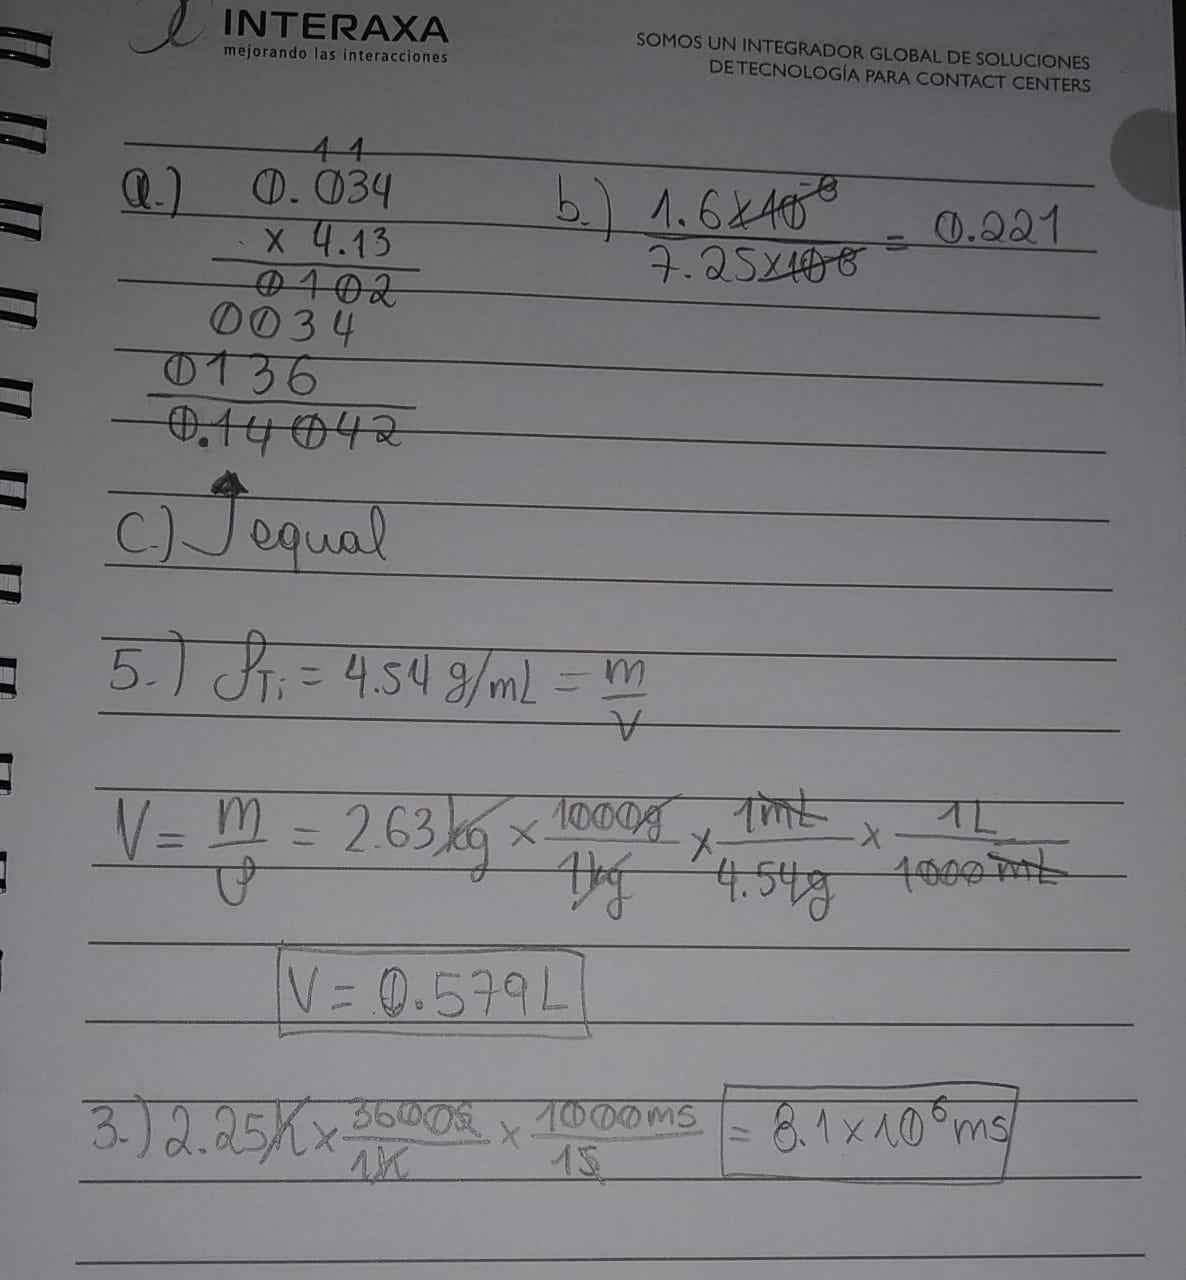 INTERAXA
mejorando las interacciones
SOMOS UN INTEGRADOR GLOBAL DE SOLUCIONES
DE TECNOLOGÍA PARA CONTACT CENTERS
1 1
a.) 0.034
x 4.13
0102
0034
0136
0.14042
b.) 1.6x10⁻⁸ / 7.25x10⁻⁸ = 0.221
c.) equal
5.) ρTi = 4.54 g/mL = m/V
V = m/ρ = 2.63kg x 1000g/1kg x 1mL/4.54g x 1L/1000mL
V = 0.579L
3.) 2.25h x 3600s/1h x 1000ms/1s = 8.1x10⁶ms